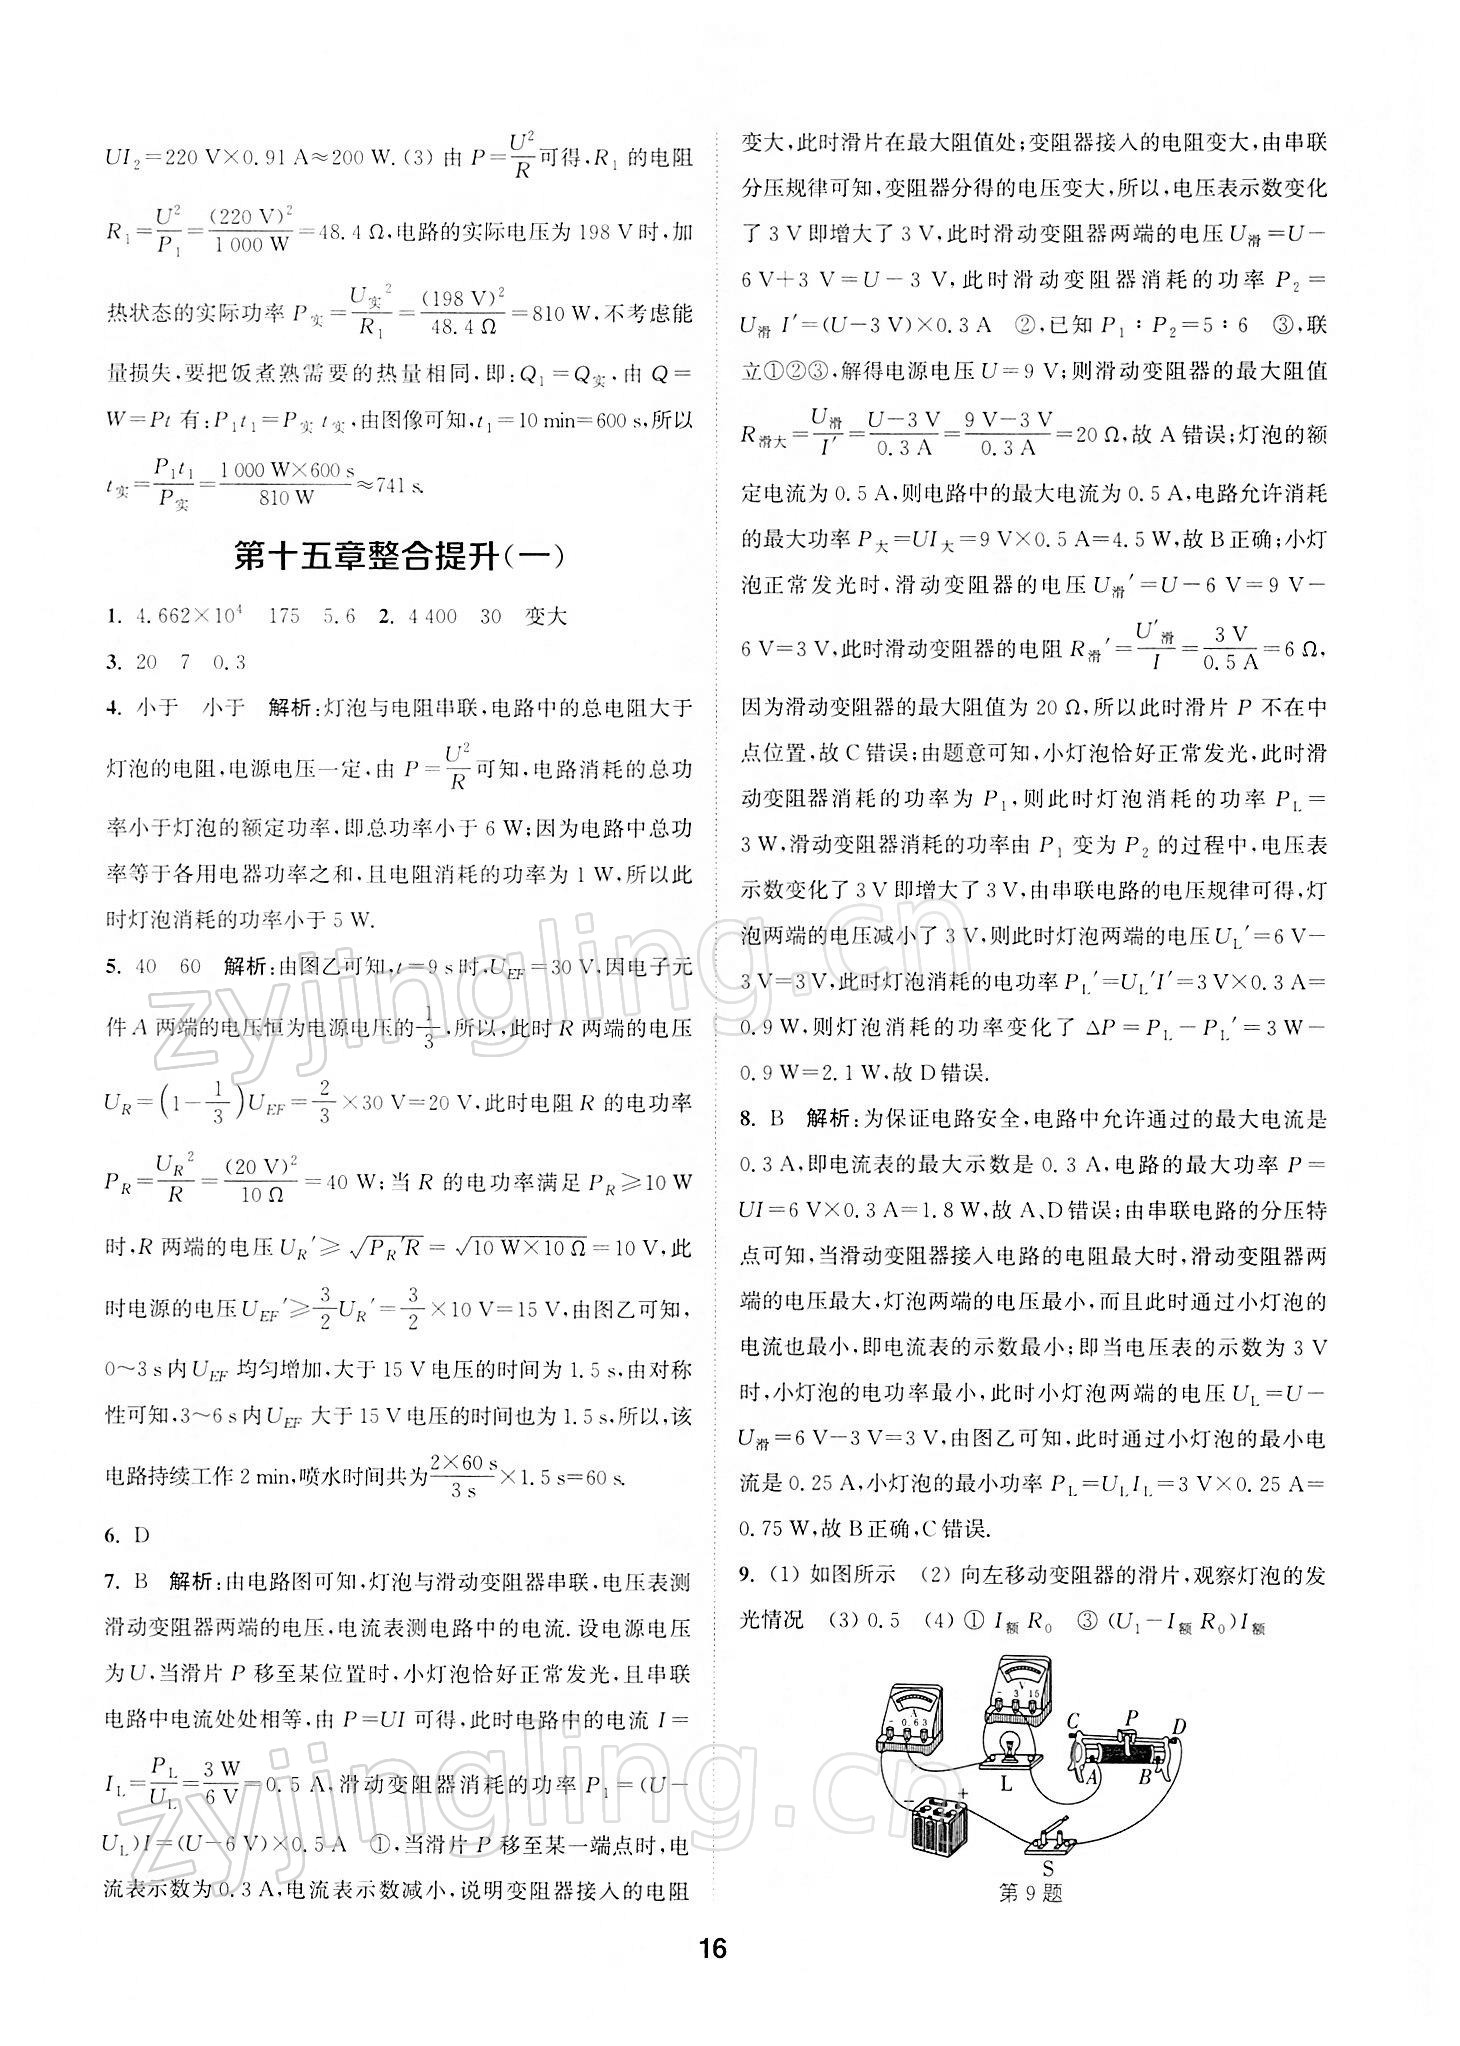 UI₂=220 V×0.91 A≈200 W.(3) 由 P=U²/R可得,R₁ 的电阻
R₁=U²/P₁=(220 V)²/1 000 W=48.4 Ω,电路的实际电压为 198 V时,加
热状态的实际功率 P实=U实²/R₁=(198 V)²/48.4 Ω=810 W,不考虑能
量损失,要把饭煮熟需要的热量相同,即:Q₁=Q实,由 Q=
W=Pt 有:P₁t₁=P实 t实,由图像可知,t₁=10 min=600 s,所以
t实=P₁t₁/P实=1 000 W×600 s/810 W≈741 s.
第十五章整合提升(一)
1. 4.662×10⁴ 175 5.6 2. 4 400 30 变大
3. 20 7 0.3
4. 小于 小于 解析:灯泡与电阻串联,电路中的总电阻大于
灯泡的电阻,电源电压一定,由 P=U²/R可知,电路消耗的总功
率小于灯泡的额定功率,即总功率小于 6 W;因为电路中总功
率等于各用电器功率之和,且电阻消耗的功率为 1 W,所以此
时灯泡消耗的功率小于 5 W.
5. 40 60 解析:由图乙可知,t=9 s时,U_EF=30 V,因电子元
件 A 两端的电压恒为电源电压的1/3,所以,此时 R 两端的电压
U_R=(1-1/3)U_EF=2/3×30 V=20 V,此时电阻 R 的电功率
P_R=U_R²/R=(20 V)²/10 Ω=40 W;当 R 的电功率满足 P_R≥10 W
时,R 两端的电压 U_R′≥√(P_R′R)=√(10 W×10 Ω)=10 V,此
时电源的电压 U_EF′≥3/2U_R′=3/2×10 V=15 V,由图乙可知,
0～3 s内 U_EF 均匀增加,大于 15 V电压的时间为 1.5 s,由对称
性可知,3～6 s内 U_EF 大于 15 V电压的时间也为 1.5 s,所以,该
电路持续工作 2 min,喷水时间共为2×60 s/3 s×1.5 s=60 s.
6. D
7. B 解析:由电路图可知,灯泡与滑动变阻器串联,电压表测
滑动变阻器两端的电压,电流表测电路中的电流.设电源电压
为 U,当滑片 P 移至某位置时,小灯泡恰好正常发光,且串联
电路中电流处处相等,由 P=UI 可得,此时电路中的电流 I=
I_L=P_L/U_L=3 W/6 V=0.5 A,滑动变阻器消耗的功率 P₁=(U-
U_L)I=(U-6 V)×0.5 A ①,当滑片 P 移至某一端点时,电
流表示数为 0.3 A,电流表示数减小,说明变阻器接入的电阻
变大,此时滑片在最大阻值处;变阻器接入的电阻变大,由串联
分压规律可知,变阻器分得的电压变大,所以,电压表示数变化
了 3 V 即增大了 3 V,此时滑动变阻器两端的电压 U滑=U-
6 V+3 V=U-3 V,此时滑动变阻器消耗的功率 P₂=
U滑 I′=(U-3 V)×0.3 A ②,已知 P₁∶P₂=5∶6 ③,联
立①②③,解得电源电压 U=9 V;则滑动变阻器的最大阻值
R滑大=U滑/I′=U-3 V/0.3 A=9 V-3 V/0.3 A=20 Ω,故 A 错误;灯泡的额
定电流为 0.5 A,则电路中的最大电流为 0.5 A,电路允许消耗
的最大功率 P大=UI大=9 V×0.5 A=4.5 W,故 B 正确;小灯
泡正常发光时,滑动变阻器的电压 U滑′=U-6 V=9 V-
6 V=3 V,此时滑动变阻器的电阻 R滑′=U′滑/I=3 V/0.5 A=6 Ω,
因为滑动变阻器的最大阻值为 20 Ω,所以此时滑片 P 不在中
点位置,故 C 错误;由题意可知,小灯泡恰好正常发光,此时滑
动变阻器消耗的功率为 P₁,则此时灯泡消耗的功率 P_L=
3 W,滑动变阻器消耗的功率由 P₁ 变为 P₂ 的过程中,电压表
示数变化了 3 V 即增大了 3 V,由串联电路的电压规律可得,灯
泡两端的电压减小了 3 V,则此时灯泡两端的电压 U_L′=6 V-
3 V=3 V,此时灯泡消耗的电功率 P_L′=U_L′I′=3 V×0.3 A=
0.9 W,则灯泡消耗的功率变化了 ΔP=P_L-P_L′=3 W-
0.9 W=2.1 W,故 D 错误.
8. B 解析:为保证电路安全,电路中允许通过的最大电流是
0.3 A,即电流表的最大示数是 0.3 A,电路的最大功率 P=
UI=6 V×0.3 A=1.8 W,故 A、D 错误;由串联电路的分压特
点可知,当滑动变阻器接入电路的电阻最大时,滑动变阻器两
端的电压最大,灯泡两端的电压最小,而且此时通过小灯泡的
电流也最小,即电流表的示数最小;即当电压表的示数为 3 V
时,小灯泡的电功率最小,此时小灯泡两端的电压 U_L=U-
U滑=6 V-3 V=3 V,由图乙可知,此时通过小灯泡的最小电
流是 0.25 A,小灯泡的最小功率 P_L=U_L I_L=3 V×0.25 A=
0.75 W,故 B 正确,C 错误.
9. (1) 如图所示 (2) 向左移动变阻器的滑片,观察灯泡的发
光情况 (3) 0.5 (4) ① I额 R₀ ③ (U₁-I额 R₀)I额
A
- 0.6 3
V
- 3 15
L
C P D
A B
- +
S
第 9 题
16
zyjingling.cn
zyjingling.cn